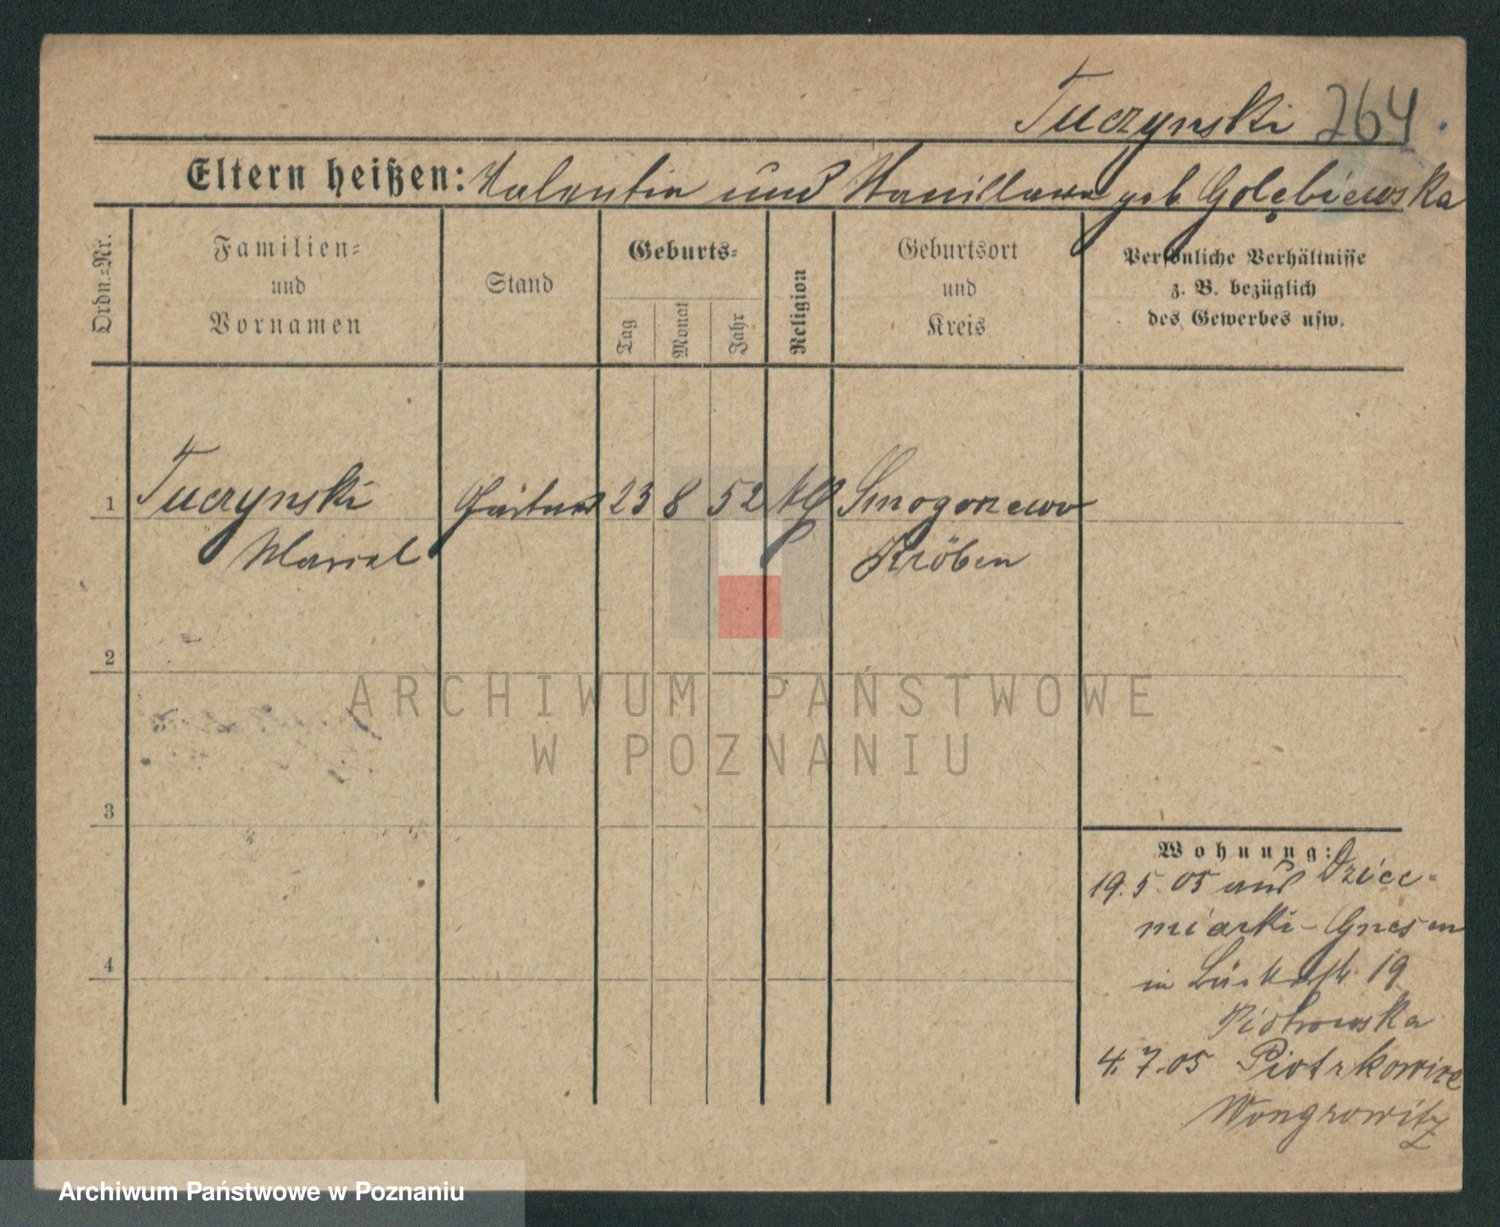 Tuczynski 264
Eltern heißen: Valentin und Stanislawa geb. Golębiewska
Ordn.=Nr.
Familien=
und
Vornamen
Stand
Geburts=
Tag
Monat
Jahr
Religion
Geburtsort
und
Kreis
Persönliche Verhältnisse
z. B. bezüglich
des Gewerbes usw.
1 Tuczynski Gärtner 23 8 52 Smogorzewo
Kröben
2
3
4
ARCHIWUM PAŃSTWOWE
W POZNANIU
Wohnung:
19.5.05 aus Dziec-
miarki-Gnesen
in 19
Piotrowska
4.7.05 Piotrkowice
Wongrowitz
Archiwum Państwowe w Poznaniu